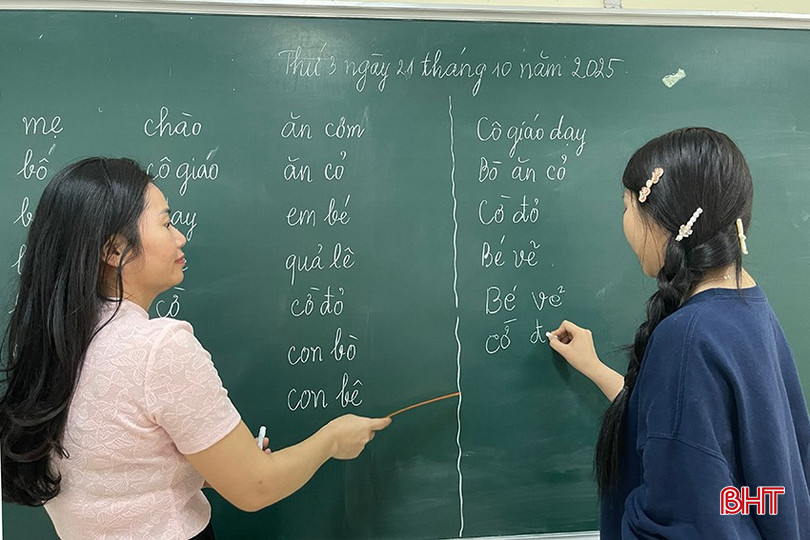 Thứ 3 ngày 21 tháng 10 năm 2025
mẹ
bố
chào
cô giáo
cờ
ăn cơm
ăn cỏ
em bé
quả lê
cờ đỏ
con bò
con bê
Cô giáo dạy
Bò ăn cỏ
Cờ đỏ
Bé vẽ
Bé vẻ
cờ đ
BHT